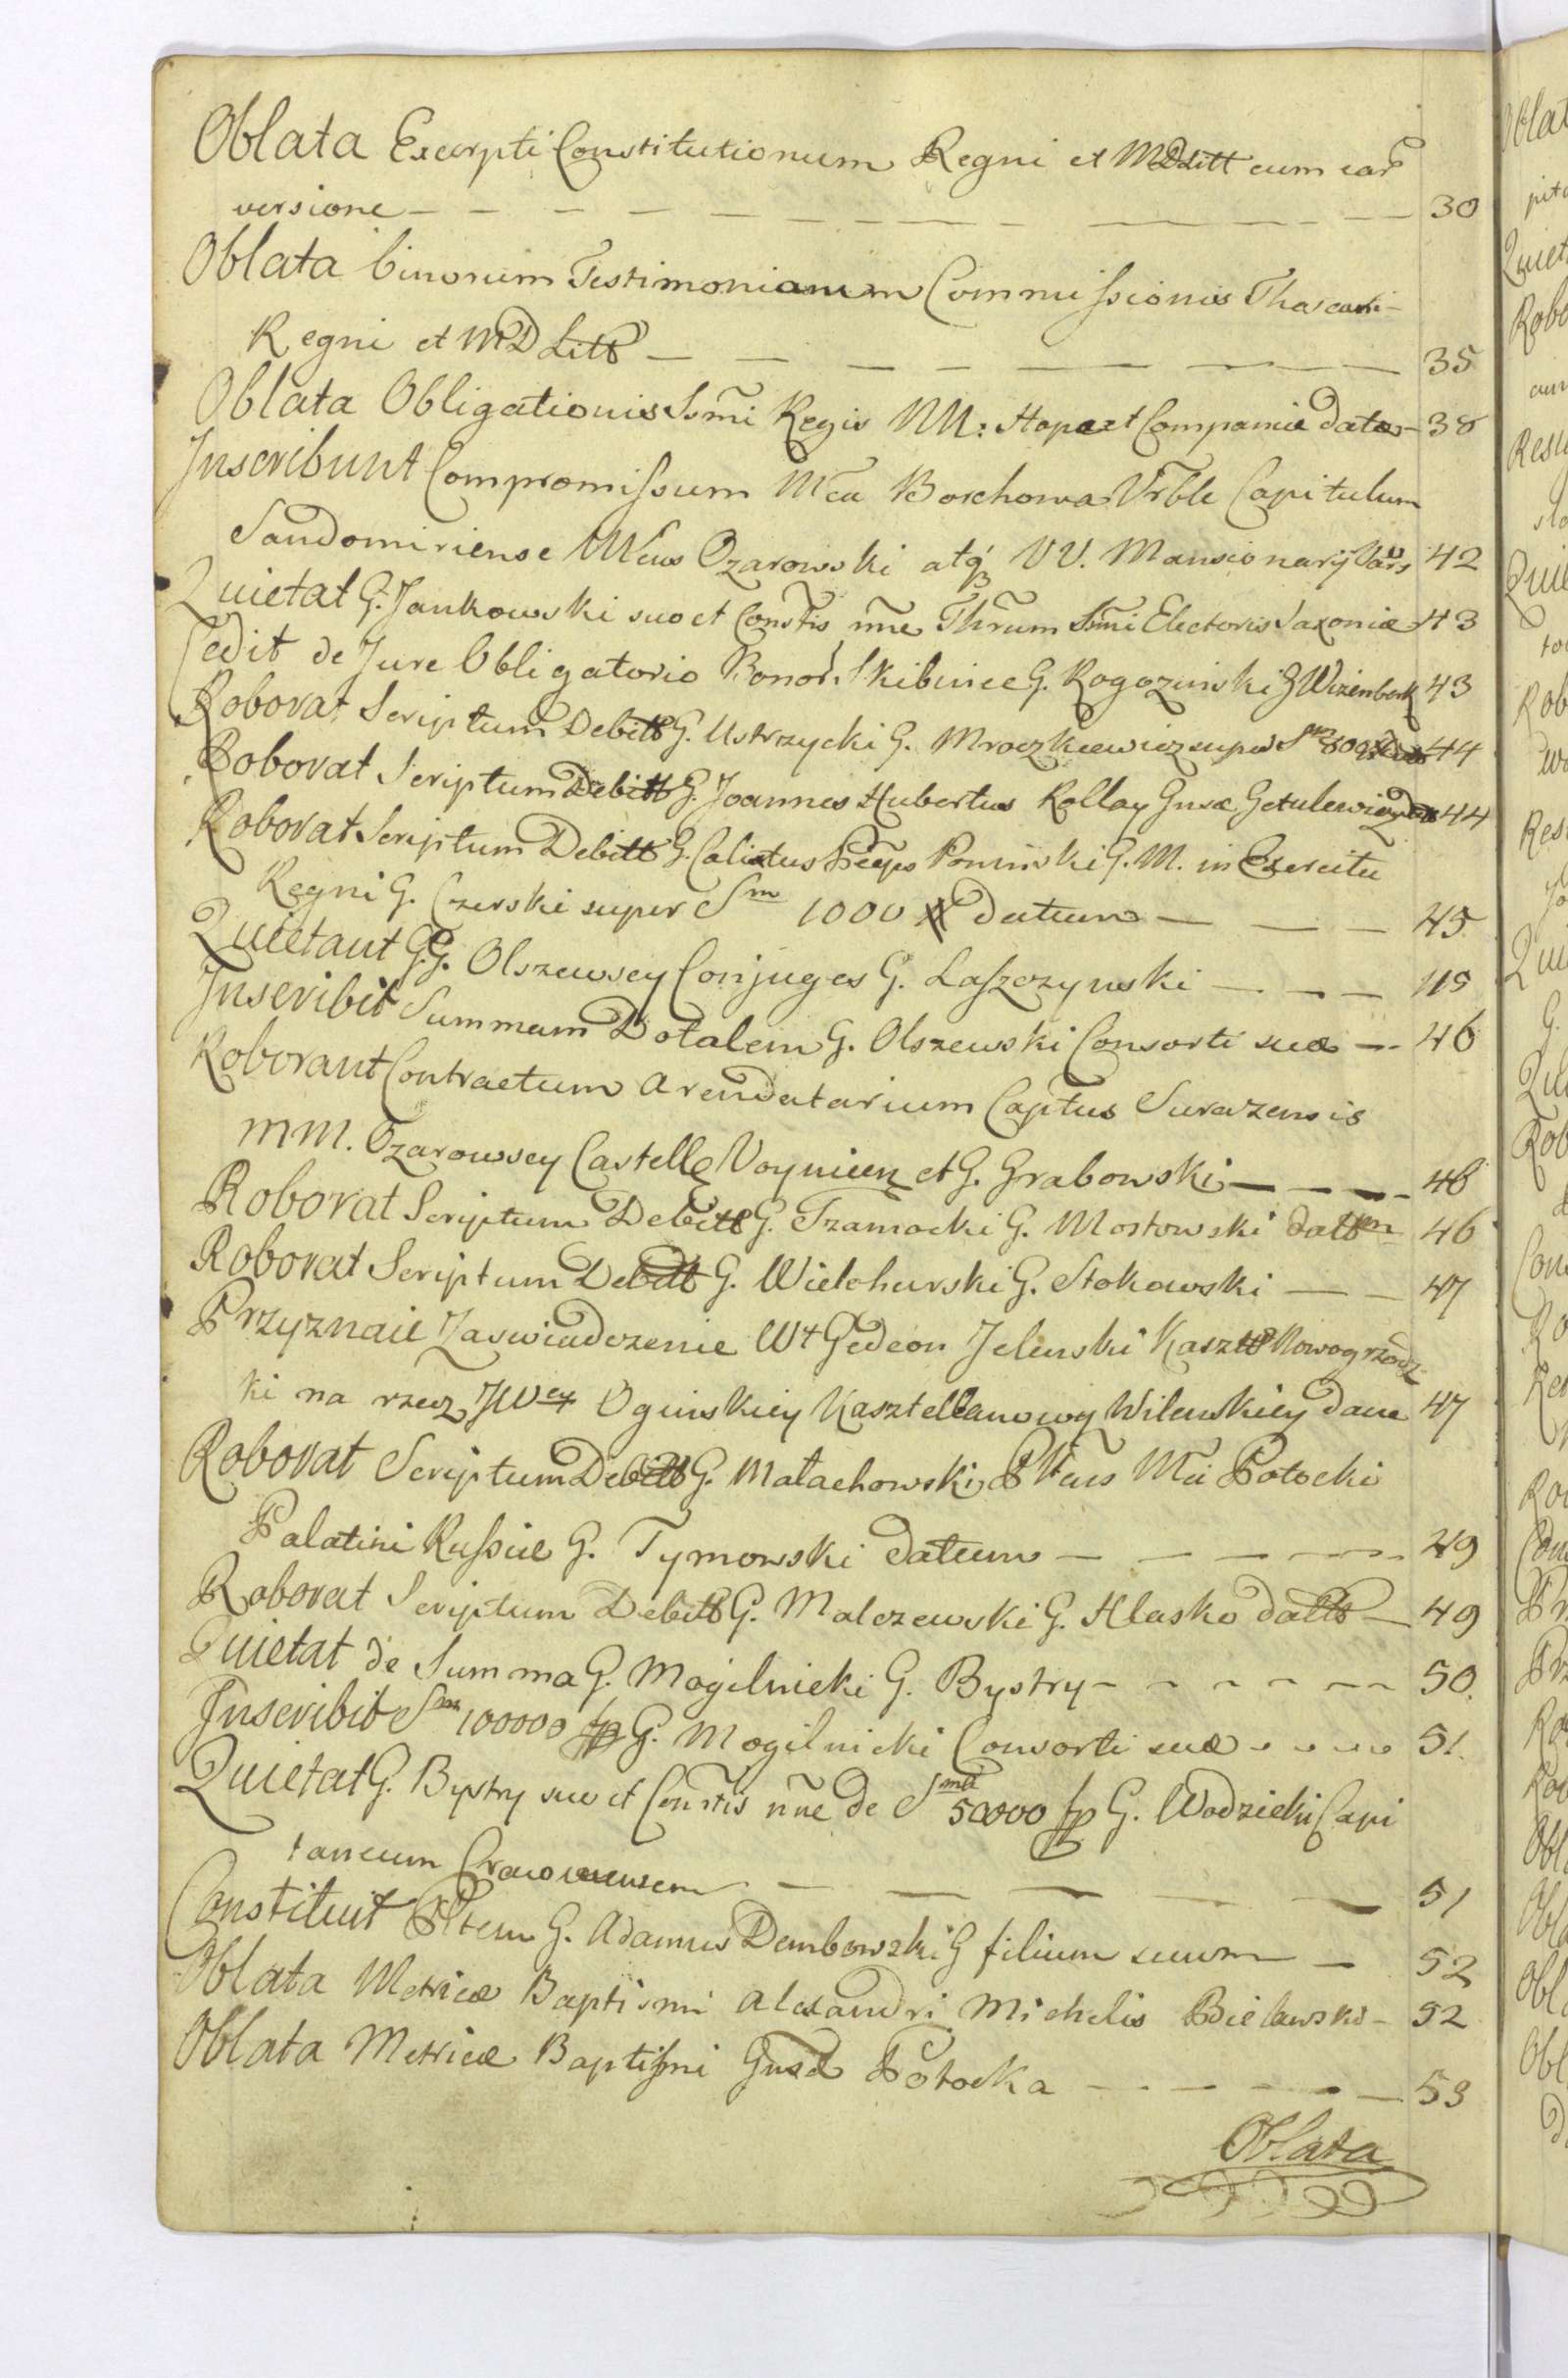 Oblata Excerpti Constitutionum Regni et MDLitt cum ear
versione 30
Oblata binorum Testimoniarum Commissionis Thesauri
Regni et MD Litt 35
Oblata Obligationis Ssmi Regis MM: Hope et Companiæ datæ 38
Inscribunt Compromissum Mca Borchowa Vrble Capitulum
Sandomiriense Mcus Ozarowski atq VV. Mansionarij Vars 42
Quietat G. Jankowski suo et Constis nne Thrum Ssmi Electoris Saxoniæ 43
Cedit de Jure Obligatorio Bonor. Skibince G. Rogozinski G Wizenberk 43
Roborat Scriptum Debitt G. Ustrzycki G. Mroczkiewicz super Sm 44
Roborat Scriptum Debitt G. Joannes Hubertus Kollay Gnsæ Getulewicz 44
Roborat Scriptum Debitt G. Calixtus Pceps Poninski G. M. in Exercitu
Regni G. Czerski super Sm 1000 # datum 45
Quietant GG. Olszewscy Conjuges G. Laszczynski 45
Inscribit Summam Dotalem G. Olszewski Consorti suæ 46
Roborant Contractum Arendatarium Captus Surazensis
MM. Ozarowscy Castell Voynicen et G. Grabowski 46
Roborat Scriptum Debitt G. Szamocki G. Mostowski dattm 46
Roborat Scriptum Debitt G. Wielohurski G. Stokowski 47
Przyznaie Zaswiadczenie Wt Gedeon Jelenski Kasztt Nowogrzodz
ki na rzecz JWey Oginskiey Kasztellanowy Wilenskiey dane 47
Roborat Scriptum Debitt G. Małachowski Pltens Mci Potocki
Palatini Russiæ G. Tymowski datum 49
Roborat Scriptum Debitt G. Malczewski G. Hlasko datt 49
Quietat de Summa G. Mogilnicki G. Bystry 50.
Inscribit Sm 100000 fp G. Mogilnicki Consorti suæ 51.
Quietat G. Bystry suo et Constis nne de Sma 50000 fp G. Wodzicki Capi
taneum Cracoviensem 51
Constituit Pltem G. Adamus Dembowski G filium suum 52
Oblata Metricæ Baptismi Alexandri Michelis Bielawski 52
Oblata Metricæ Baptismi Gnsæ Potocka 53
Oblata